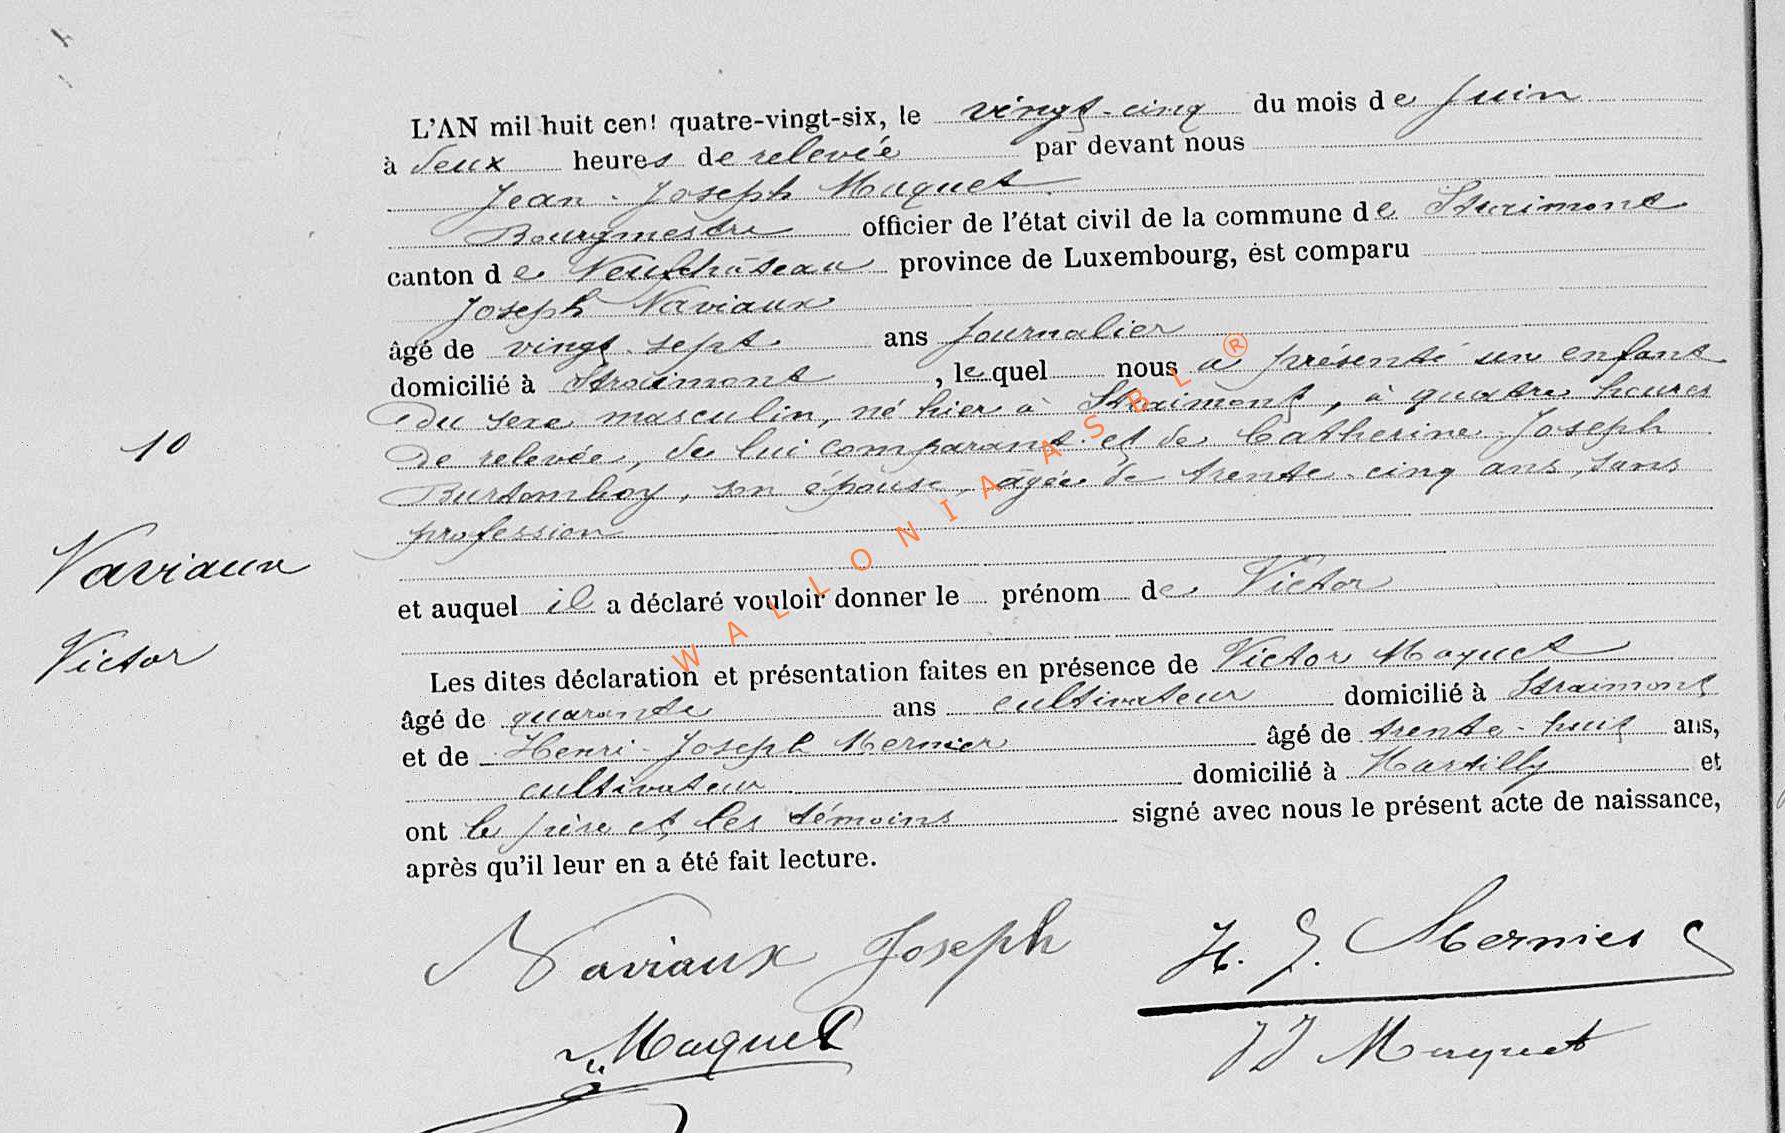 L'AN mil huit cent quatre-vingt-six, le vingt-cinq du mois de Juin
à deux heures de relevée par devant nous
Jean-Joseph Maquet
Bourgmestre officier de l'état civil de la commune de Straimont
canton de Neufchâteau province de Luxembourg, est comparu
Joseph Naviaux
âgé de vingt-sept ans journalier
domicilié à Straimont, lequel nous a présenté un enfant
du sexe masculin, né hier à Straimont, à quatre heures
de relevée, de lui comparant et de Catherine-Joseph
son épouse, âgée de trente-cinq ans, sans
profession
10
Naviaux
Victor
et auquel il a déclaré vouloir donner le prénom de Victor
Les dites déclaration et présentation faites en présence de Victor Maquet
âgé de quarante ans cultivateur domicilié à Straimont
et de Henri-Joseph Mernier âgé de trente-huit ans,
cultivateur domicilié à Martilly et
ont le père et les témoins signé avec nous le présent acte de naissance,
après qu'il leur en a été fait lecture.
Naviaux Joseph H. J. Mernier
V. Maquet JJ Maquet
WALLONIA ASBL ®